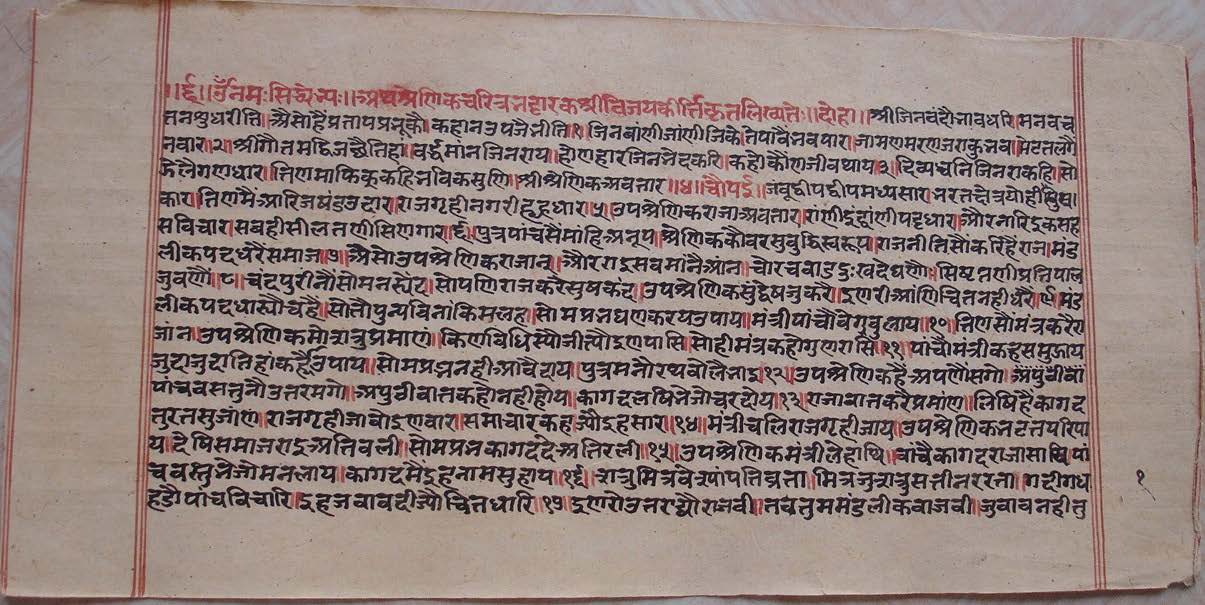 ॥र्द॥ ॐ नमः सिद्धेभ्यः॥ अथ श्रेणिकचरित्र भट्टारक श्री विजयकीर्त्ति कृत लिख्यते॥ दोहा॥ श्री जिन वंदौ भावधरि। मन वच
तन शुध रीति। श्रैसो है प्रताप प्रभूकौ। कहा न उपजै नीति १ जिनबांणी जांणी जिकै। ते पांवै भव पार। जामण मरण जरा
नवार।२। श्री गौतम द्विज तिहां। वर्द्धमान जिनराय। होणहार जिन भेद करि। कहो कौंण जीव थाय ३ दिव्यध्वनि जिनराज कहि।
फेलै गणधार। तिण माफिकू कहि भविक सुणि। श्री श्रेणिक अवतार॥४॥ चौपई॥ जंबूद्वीप द्वीप मध्य सार। भरत
कार। तिणमै आरिज षंड उदार। राजगृही नगरी ५ उपश्रेणिक राजा अवतार। रांणी इंद्रांणी पट्टधार। और नारि इक सह
स विचार। सबही सील तणी सिणगार।६। पुत्र पांचसै मांहि अनूप। श्रेणिक कौवर सुबुद्धि स्वरूप। राजनीति सो करिहै राज। मंड
लीक पद धरै समाज।७। श्रैसो उपश्रेणिक राजान। और राइ सब मांनै आंन। चोर चवाड दुःख दे घणै। सिष्ट तणी प्रतिपाल
जु वणै। ८। चंद्रपुरी नौ सोम नरेंद्र। सो पणि राज करै सुषकंद। उपश्रेणिक सुं द्वेष जु करै। इणरी आंणि चित नही धरै।९। मंड
लीक पद है। सो तो पुन्य विना किम लहा। सोमप्रभ घण करय उपाय। मंत्री पांचौ वेग बुलाय।१०। तिणसौं मंत्र करै
जांन। उपश्रेणिक मो शत्रु प्रमांण। किण विधिस्यौ जीत्यौ इण पासि। सोही मंत्र कहो गुणरासि।११। पांचौ मंत्री कह समुझाय
जुदा जुदा तिहां कहै उपाय। सोमप्रभ नही आवै दाय। पुत्र मनोरथ बोलै जाइ।१२। उपश्रेणिक है अपणौ सगो।
पांच वसतु नौ उतर मगो। अपुठी वात कहौ नही होय। कागद लषि भेजो चर दोय।१३। राजा वात करै प्रमांण। लिषिहै कागद
तुरत सुजांण। राजगृही जावो इण वार। समाचार कह ज्यौ इह सार।१४। मंत्री चलि राजगृही जाय। उपश्रेणिक
य। देषि समाज राइ अति वली। सोमप्रभ कागद दे अति रली।१५। उपश्रेणिक मंत्री ले हाथि। वांचै कागद राजा साथि। पां
च वस्तु भेजो मन लाय। कागदमै इह नाम सुहाय।१६। शत्रु मित्र पतिव्रता। मित्र शत्रु सती नररता।
पांच विचारि। इह जवाब दीज्यो चित धारि।१७। इणरो उतर राजवी। तब तुम मंडलीक वाजवी। जुवाब नही तु
१